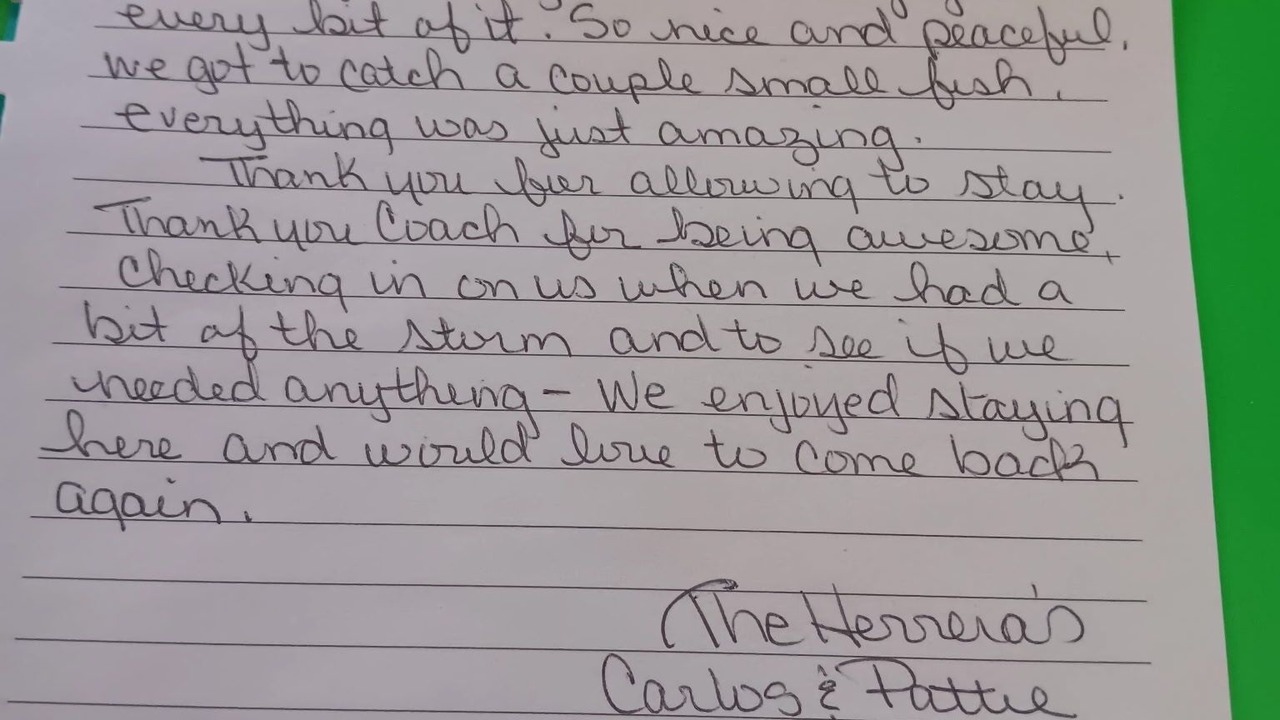 every bit of it. So nice and peaceful.
we got to catch a couple small fish.
everything was just amazing.
Thank you for allowing to stay.
Thank you Coach for being awesome,
Checking in on us when we had a
bit of the storm and to see if we
needed anything - We enjoyed staying
here and would love to come back
again.
The Herrera's
Carlos & Pattie